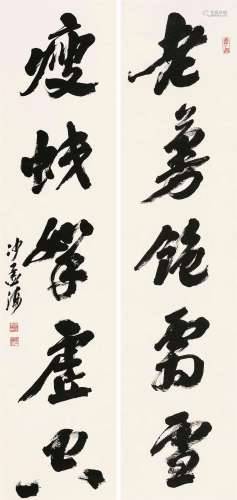 老蔓飽霜雪
瘦蛟拏虛空
沙孟海